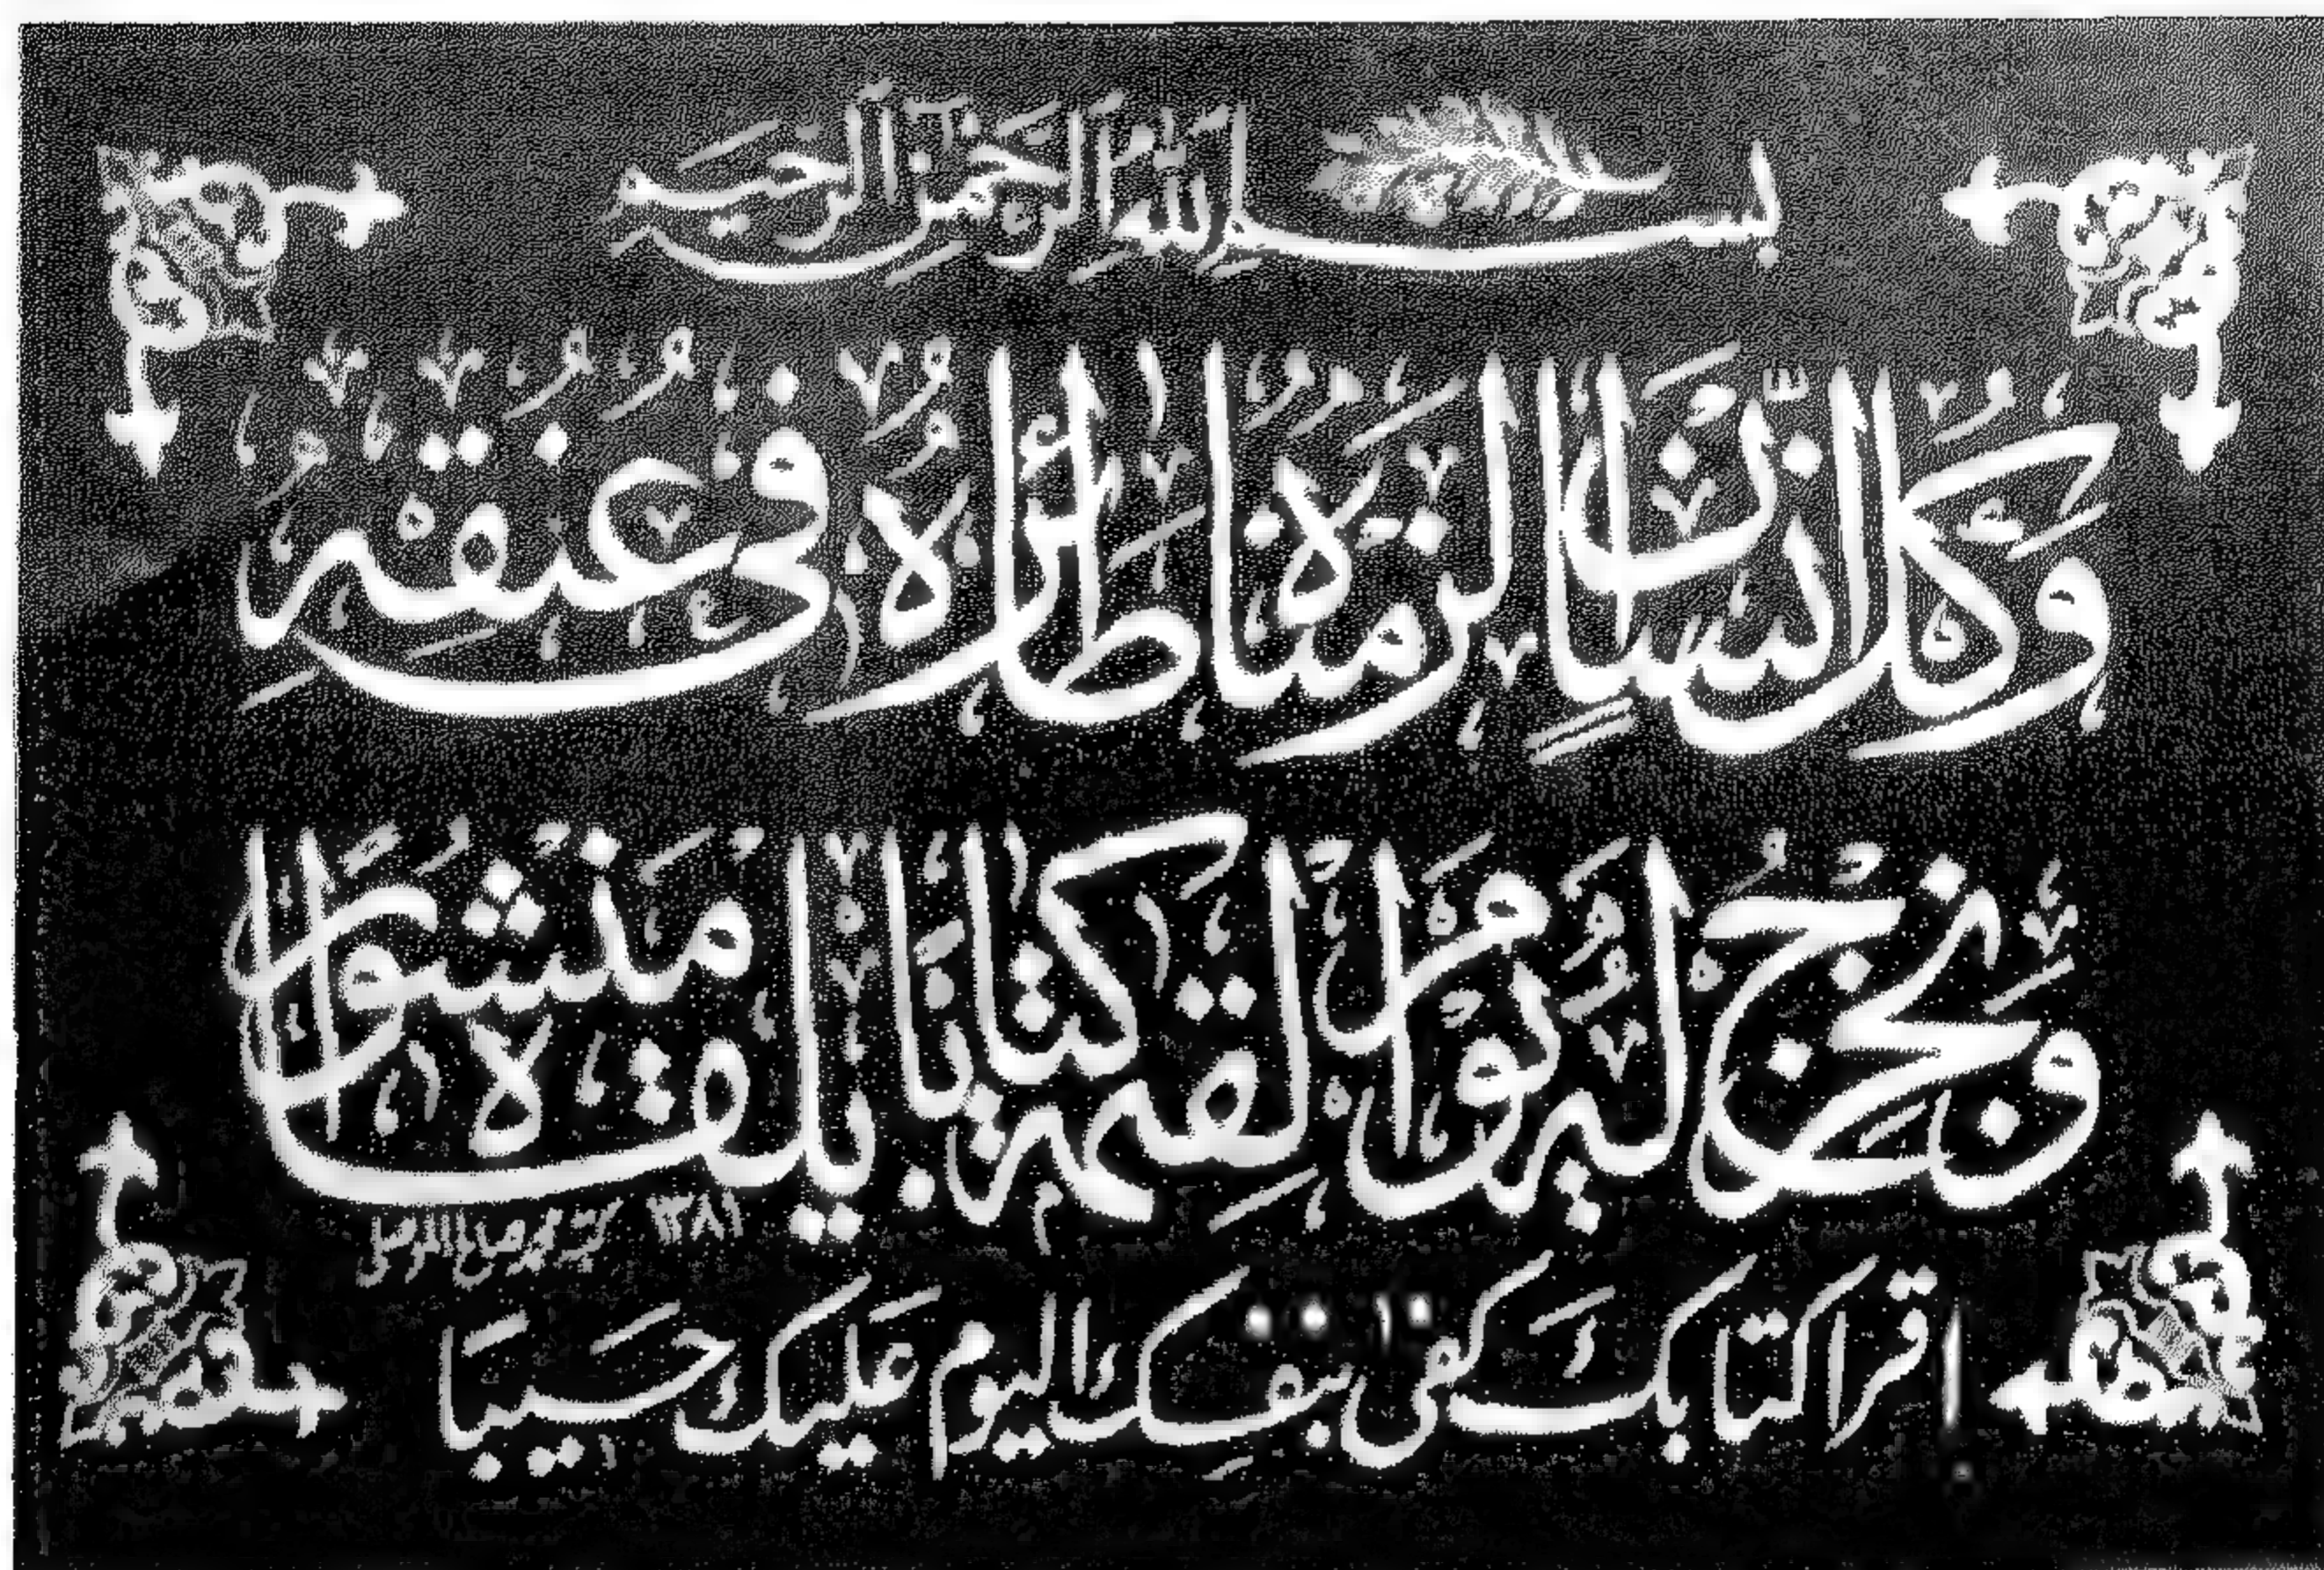 بسم الله الرحمن الرحيم
وَكُلَّ إِنسَانٍ أَلْزَمْنَاهُ طَائِرَهُ فِي عُنُقِهِ
وَنُخْرِجُ لَهُ يَوْمَ الْقِيَامَةِ كِتَابًا يَلْقَاهُ مَنشُورًا
١٣٨١
اقرا كتابك كفى بنفسك اليوم عليك حسيبا